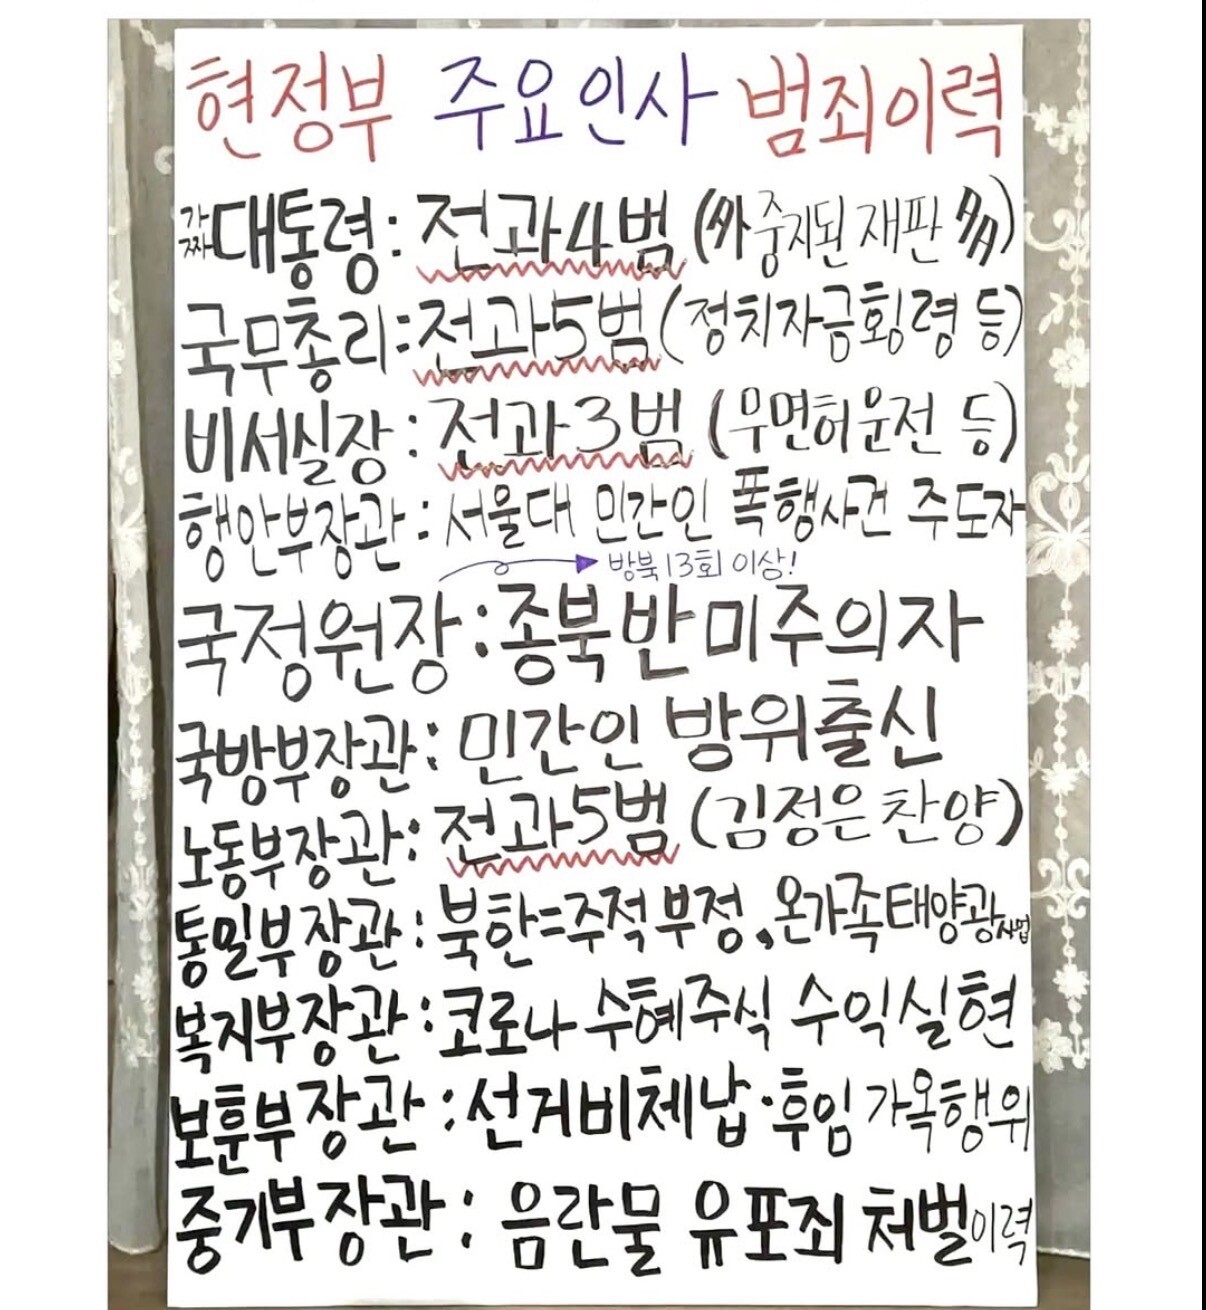 현정부 주요인사 범죄이력
가짜 대통령: 전과4범 (外 중지된 재판 多)
국무총리: 전과5범 (정치자금횡령 등)
비서실장: 전과3범 (무면허운전 등)
행안부장관: 서울대 민간인 폭행사건 주도자
방북13회 이상!
국정원장: 종북반미주의자
국방부장관: 민간인 방위출신
노동부장관: 전과5범 (김정은 찬양)
통일부장관: 북한=주적부정, 온가족태양광사업
복지부장관: 코로나 수혜주식 수익실현
보훈부장관: 선거비체납·후임 가옥행위
중기부장관: 음란물 유포죄 처벌이력